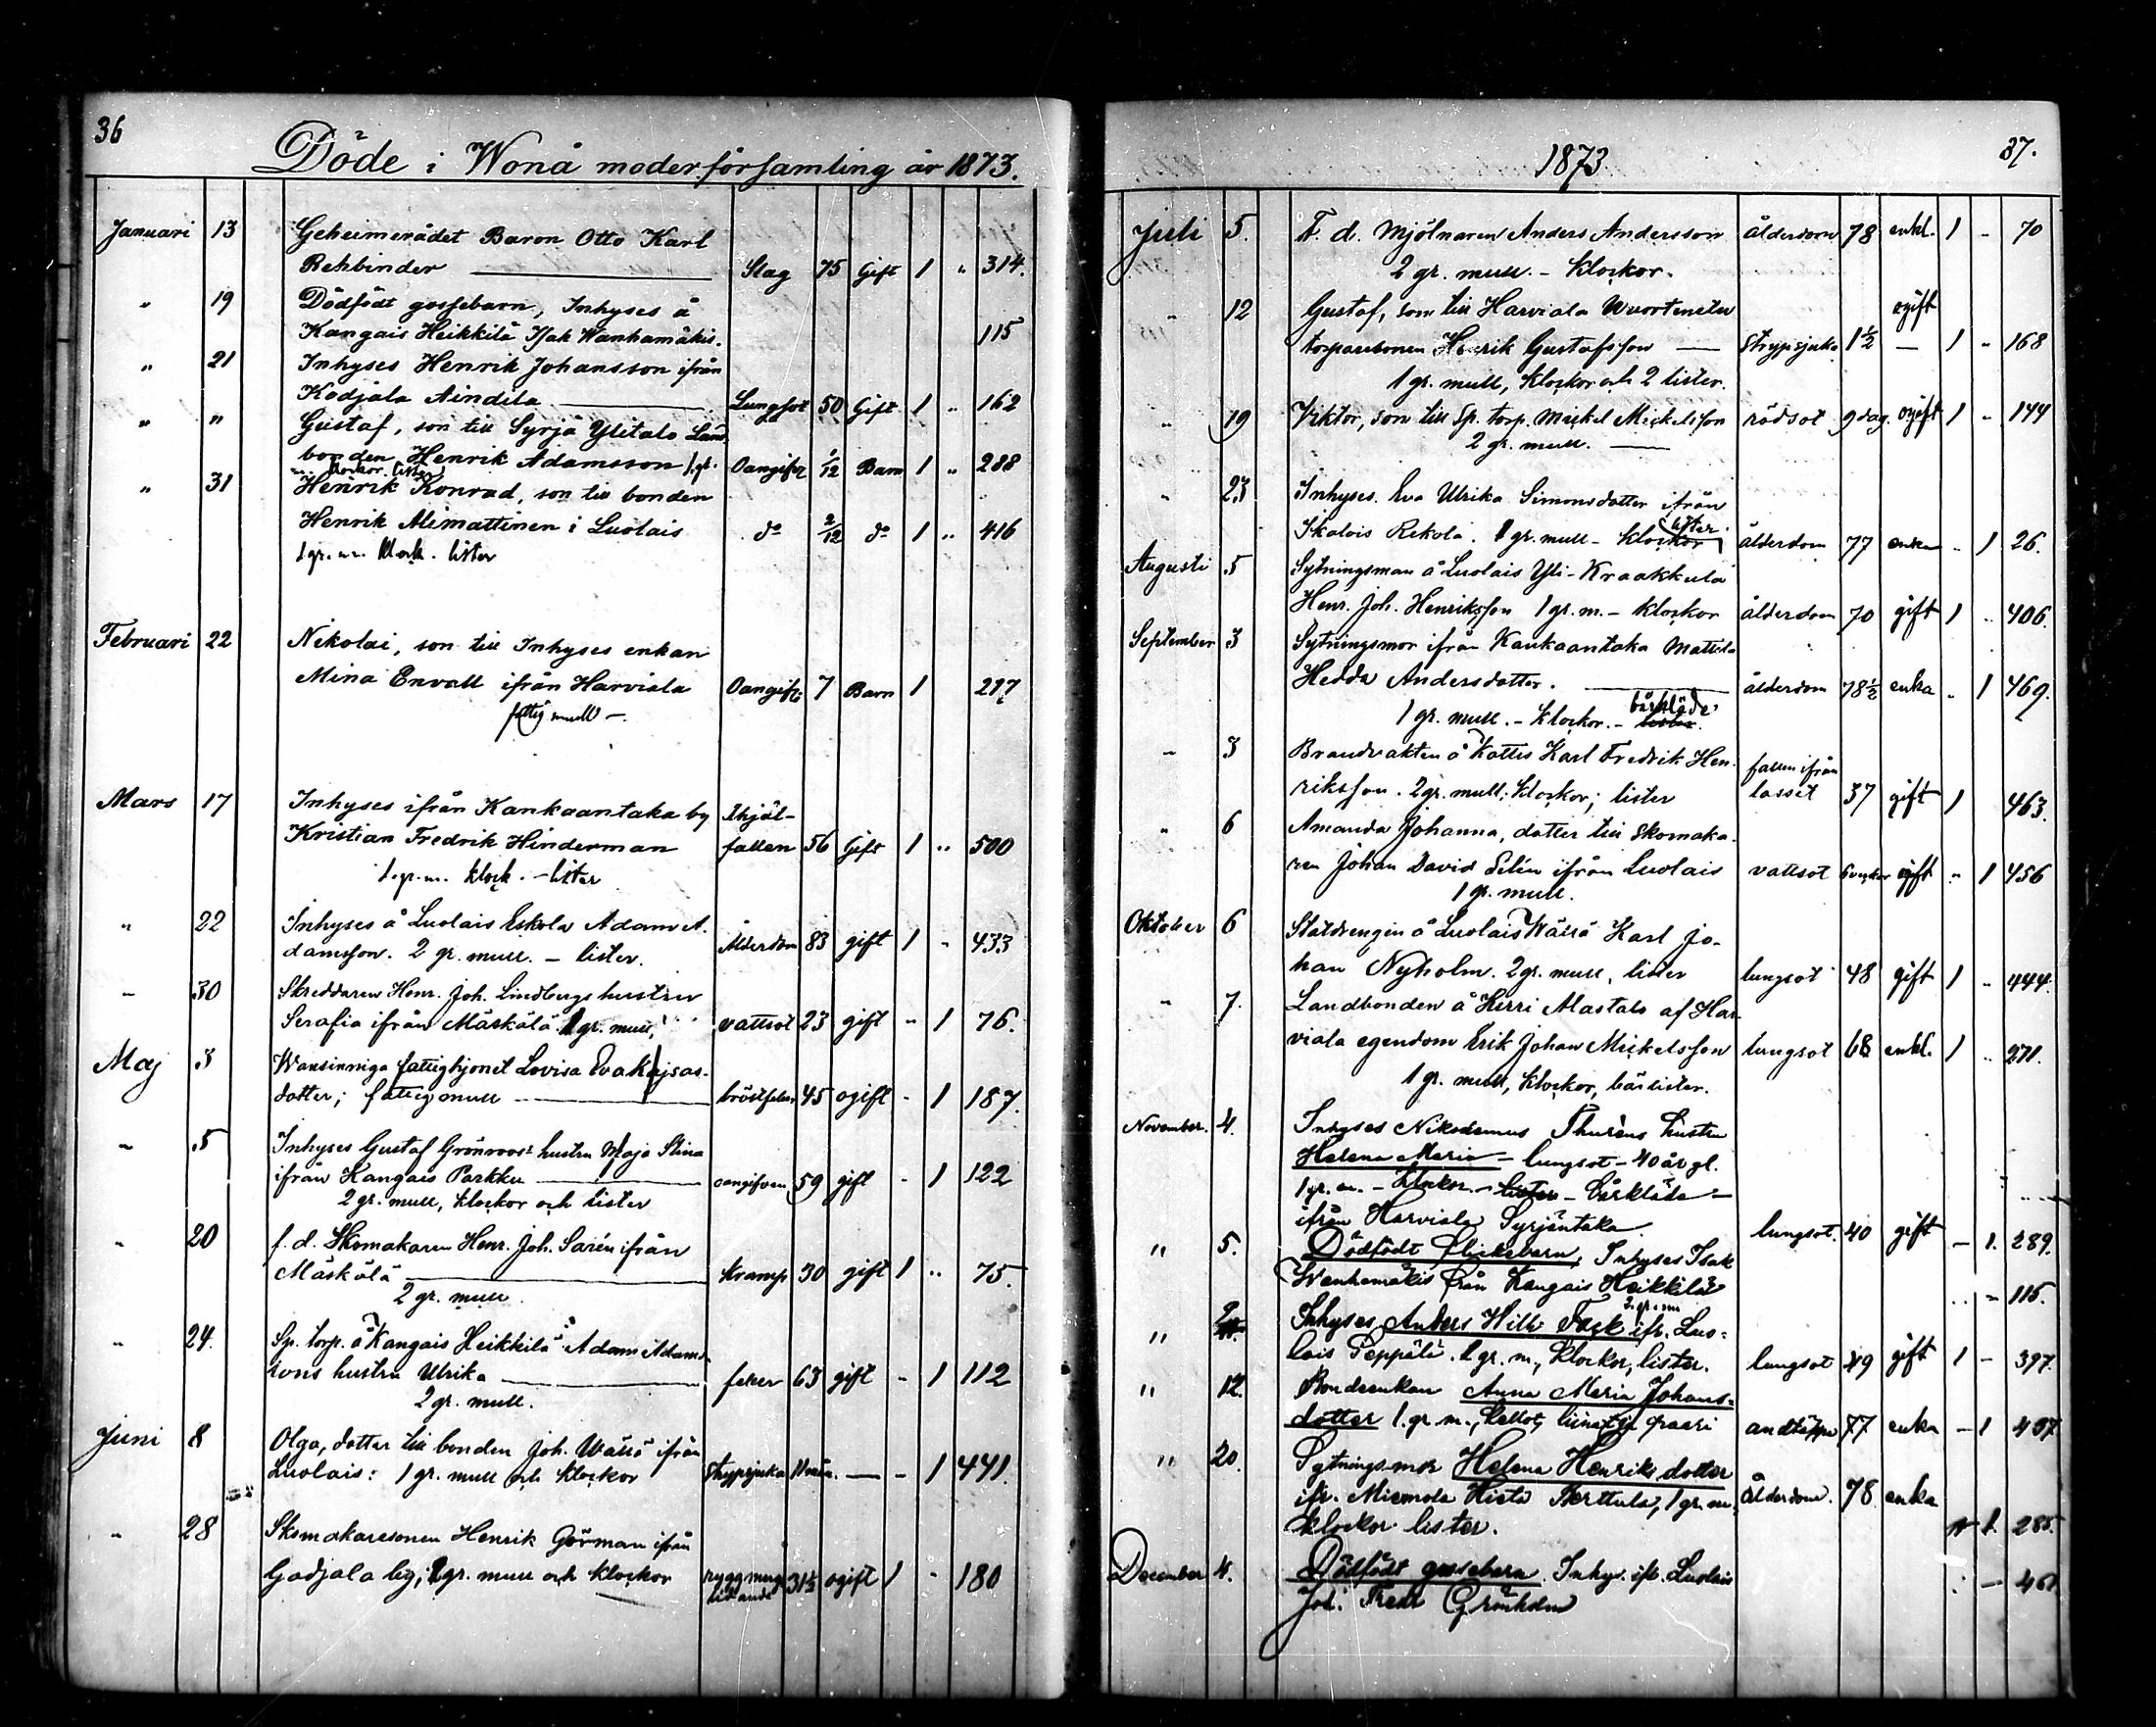 36
Döde i Wonå moderförsamling år 1873.
Januari 13 Geheimerådet Baron Otto Karl
Rehbinder Slag 75 Gift 1 " 314.
" 19 Dödfödt gossebarn, Inhyses å
Kangais Heikkilä Isak Wanhamäkis. 115
" 21 Inhyses Henrik Johansson ifrån
Kodjala Aindila Lungsot 50 Gift 1 " 162
" " Gustaf, son till Syrjä Ylitalo Land
bonden Henrik Adamsson 1 gr. Oangifv 1/12 Barn 1 " 288
m. klockor. lister
" 31 Henrik Konrad, son till bonden
Henrik Alimattinen i Luolais do 2/12 do 1 " 416
1 gr. m. klock. lister
Februari 22 Nikolai, son till Inhyses enkan
Mina Envall ifrån Harviala Oangifv. 7 Barn 1 277
fattig mull –
Mars 17 Inhyses ifrån Kankaantaka by Ihjäl-
Kristian Fredrik Hinderman fallen 56 Gift 1 " 500
1. gr. m. klock. – lister
" 22 Inhyses å Luolais Eskola Adam A.
damsson. 2 gr. mull. – lister. Ålderdom 83 gift 1 " 433
" 30 Skreddaren Henr. Joh. Lindbergs hustru
Serafia ifrån Mäskälä 1 gr. mull, vattsot 23 gift " 1 76.
Maj 3 Wansinniga fattighjonet Lovisa Eva Kajsas-
dotter; fattigmull bröstfeber 45 ogift - 1 187.
" 5 Inhyses Gustaf Grönroos' hustru Maja Stina
ifrån Kangais Parkku oangifven 59 gift - 1 122
2 gr. mull, klockor och lister
" 20 f. d. Skomakaren Henr. Joh. Sarén ifrån
Mäskälä kramp 30 gift 1 " 75.
2 gr. mull
" 24. Sp. torp. å Kangais Heikkilä Adam Adams-
sons hustru Ulrika feber 63 gift - 1 112
2 gr. mull.
Juni 8 Olga, dotter till bonden Joh. Wässä ifrån
Luolais: 1 gr. mull och klockor strypsjuka 11 mån. — - 1 441.
" 28 Skomakaresonen Henrik Görman ifrån
Godjala by; 1 gr. mull och klockor ryggmärg 31½ ogift 1 - 180
lidande
1873
37.
Juli 5. F. d. Mjölnaren Anders Andersson ålderdom 78 enkl. 1 - 70
2 gr. mull. – klockor.
" 12 Gustaf, som till Harviala Wuortenetu ogift
torparesonen Henrik Gustafsson strypsjuka 1½ — 1 " 168
1 gr. mull, klockor och 2 lister.
" 19 Viktor, son till Sp. torp. Mickel Mickelsson rödsot 9 dag. ogift 1 - 144
2 gr. mull.
" 23 Inhyses. Eva Ulrika Simonsdotter ifrån
lister
Ikalois Rekola. 1 gr. mull – klockor ålderdom 77 enka - 1 26.
Augusti 5 Sytningsman å Luolais Yli-Kraakkula
Henr. Joh. Henriksson 1 gr. m. – klockor ålderdom 70 gift 1 " 406.
September 3 Sytningsmor ifrån Kankaantaka Mattila
Hedda Andersdotter. ålderdom 78½ enka " 1 469.
bårkläde
1 gr. mull. – klockor. – lister.
" 3 Brandvakten å Kattis Karl Fredrik Hen- fallen ifrån
riksson. 2 gr. mull; klockor; lister lasset 37 gift 1 463.
" 6 Amanda Johanna, dotter till Skomaka-
ren Johan David Selén ifrån Luolais vattsot 6 veckor ogift " 1 456
1 gr. mull.
Oktober 6 Statdrengen å Luolais Wässä Karl Jo-
han Nyholm. 2 gr. mull, lister lungsot 48 gift 1 " 444.
" 7. Landbonden å Herri Alastalo af Har-
viala egendom Erik Johan Mickelsson lungsot 68 enkl. 1 " 271.
1 gr. mull, klockor, bår lister.
November. 4. Inhyses Nikodemus Thuréns hustru
Helena Maria – lungsot – 40 år gl.
1 gr. m. – klockor – lister – bårkläde –
ifrån Harviala Syrjäntaka lungsot. 40 gift – 1. 289.
" 5. Dödfödt flickebarn, Inhyses Isak
Wanhamäkis från Kangais Heikkilä – 115.
2. gr. m
" Inhyses Anders Wilh. Fack ifr. Luo-
lais Peppälä. 1 gr. m., klockor, lister. lungsot 49 gift 1 – 397.
" 12. Bondeenkan Anna Maria Johans-
dotter 1. gr m., kellot, liinat ja paari andtäppa 77 enka – 1 437
" 20. Sytningsmor Helena Henriksdotter
ifr. Miemola Hista Perttula, 1 gr. m, Ålderdom. 78. enka
klockor lister. 1. 285.
December 4. Dödfödt gossebarn. Inhys. ifr. Luolais
Joh. Fredr Grönholm – 461